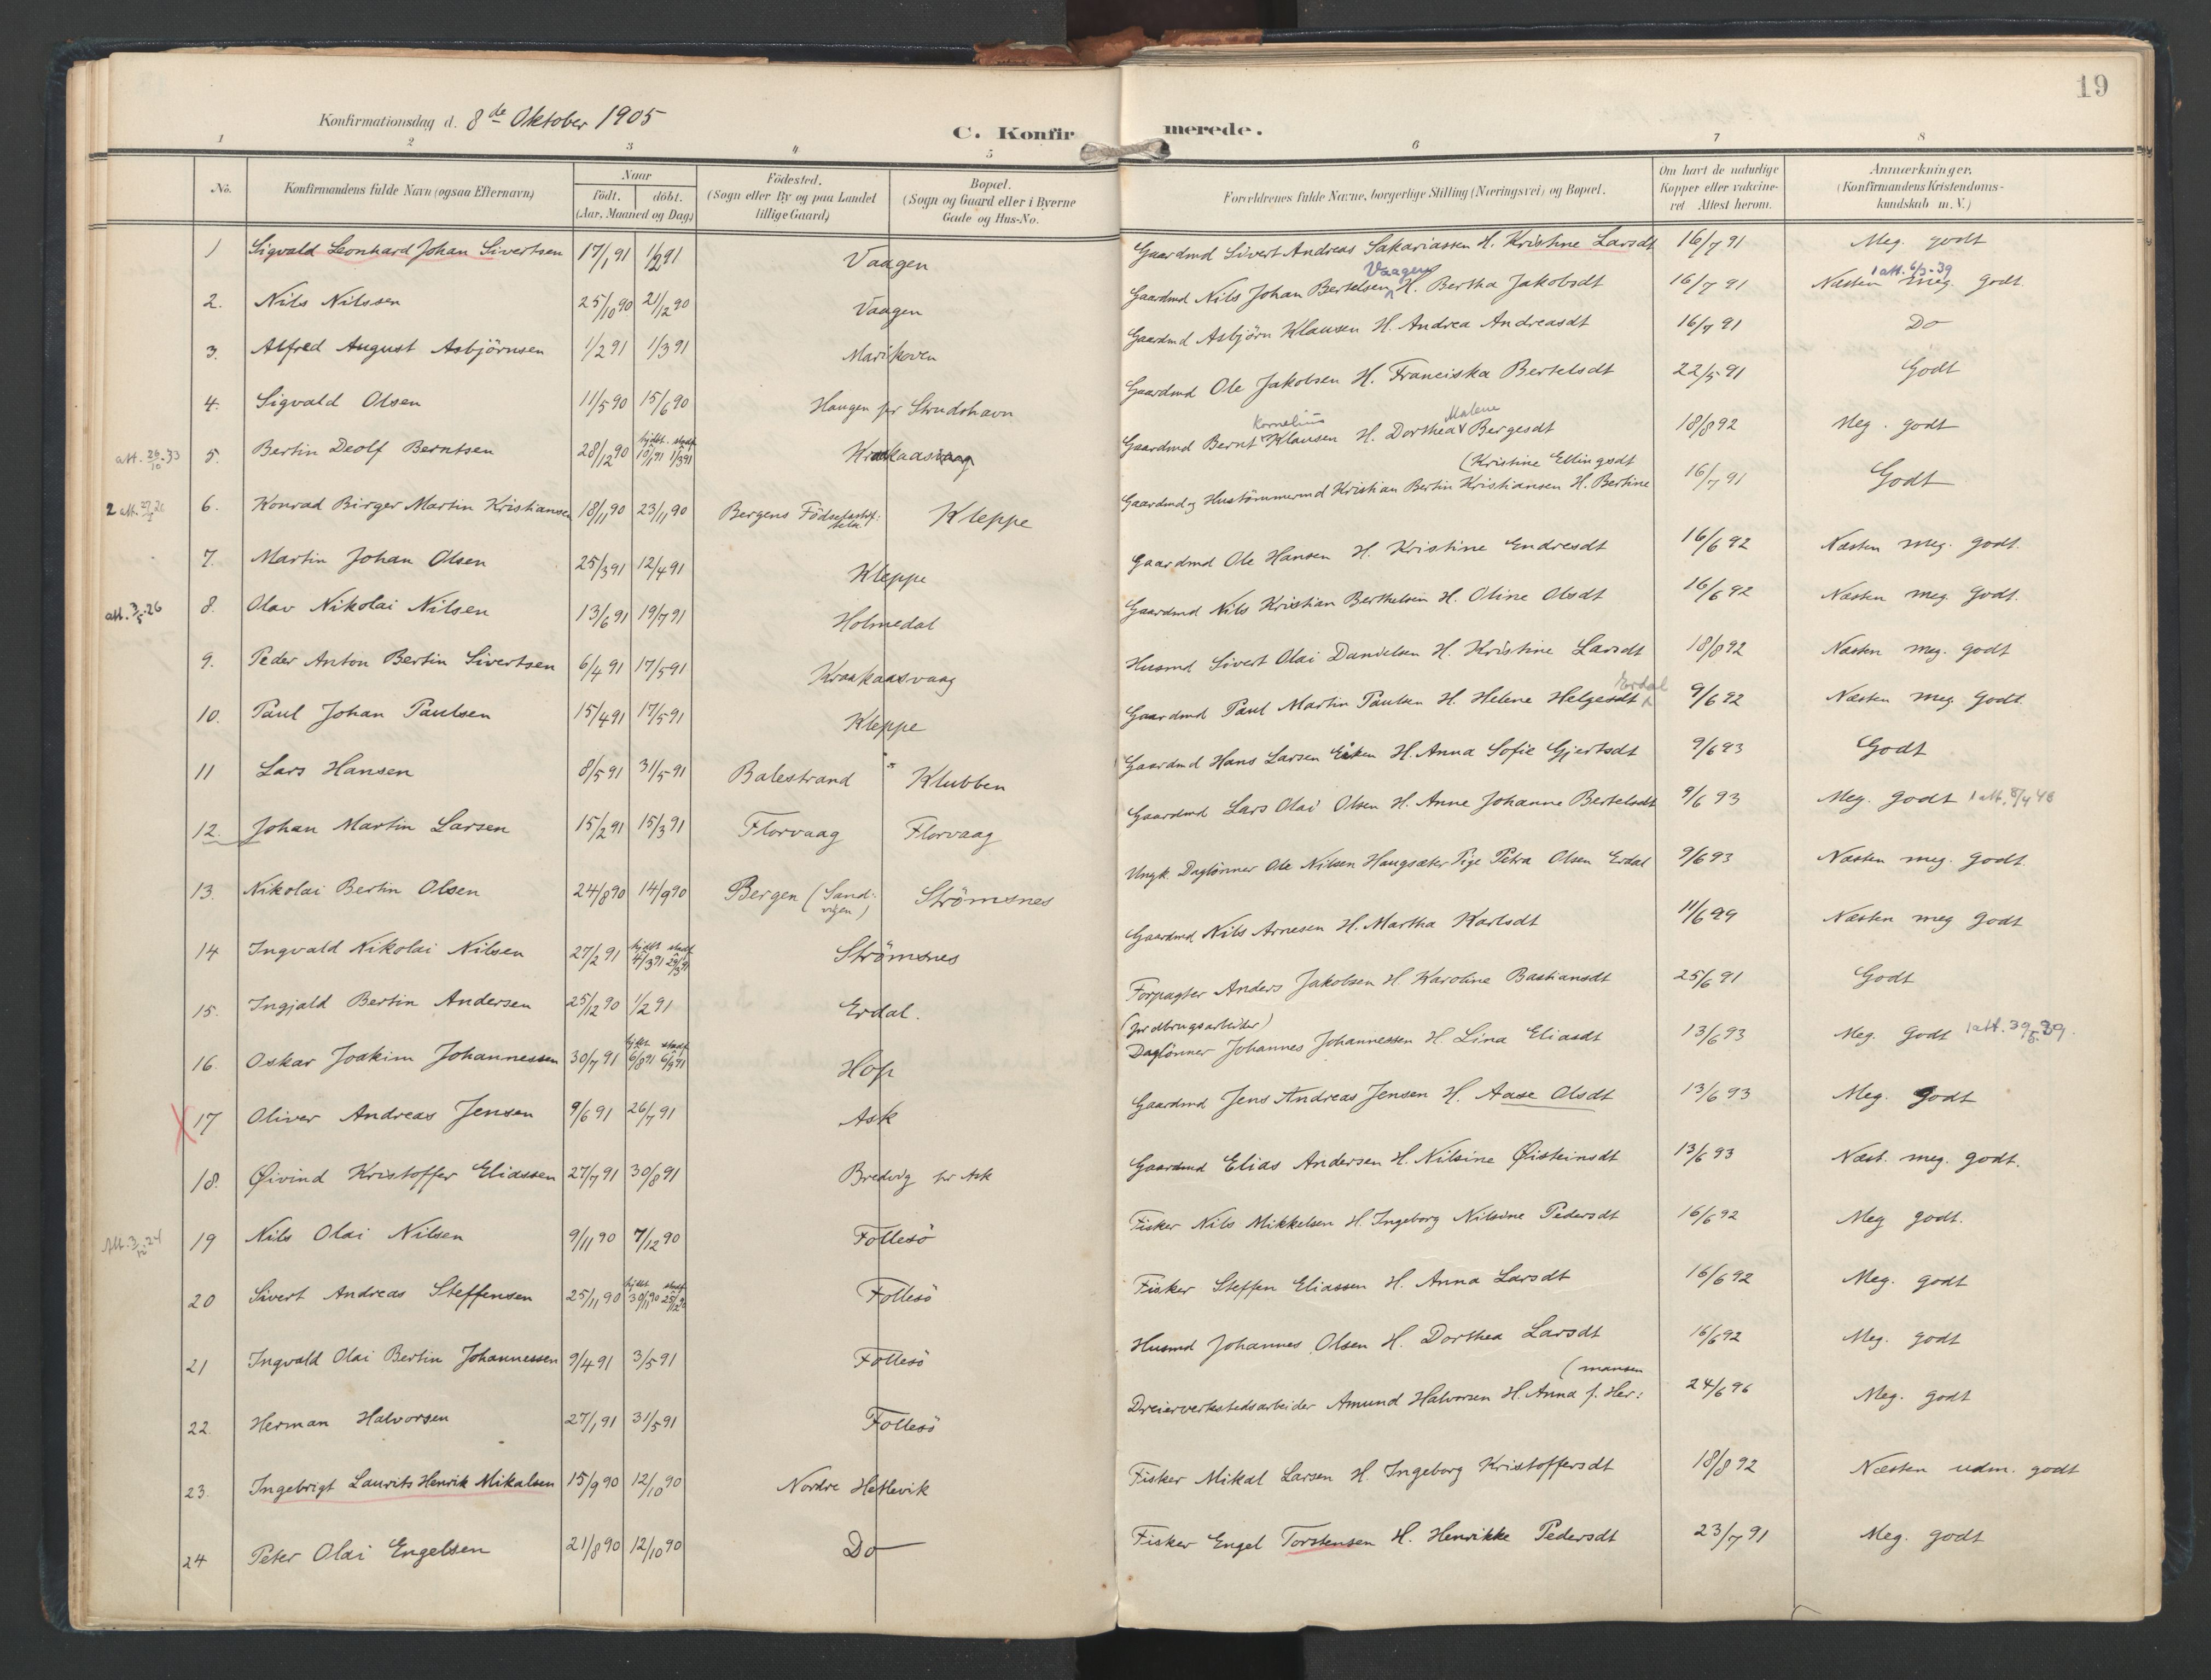 19
Konfirmationsdag d. 8de Oktober 1905
C. Konfirmerede.
1 2 3 4 5 6 7 8
No. Konfirmandens fulde Navn (ogsaa Efternavn) Naar født. døbt. (Aar, Maaned og Dag) Fødested. (Sogn eller By og paa Landet tillige Gaard) Bopæl. (Sogn og Gaard eller i Byerne Gade og Hus-No. Forældrenes fulde Navne, borgerlige Stilling (Næringsvei) og Bopæl. Om havt de naturlige Kopper eller vakcineret. Attest herom. Anmerkninger. (Konfirmandens Kristendomskundskab m. V.)
1 Sigvald Leonhard Johan Sivertsen 17/1 91 1/2 91 Vaagen Gaardmd Sivert Andreas Sakariassen H. Kristine Larsdt 16/7 91 Meg. godt
2. Nils Nilssen 25/10 90 21/12 90 Vaagen Gaardmd Nils Johan Bertelsen Vaagen H. Bertha Jakobsdt 16/7 91 Næsten meg. godt. 1 att. 6/3-39
3. Alfred August Asbjörnsen 1/2 91 1/3 91 Marikoven Gaardmd Asbjörn Klausen H. Andrea Andreasdt 16/7 91 Do
4. Sigvald Olsen 11/5 90 15/6 90 Haugen pr Strudshavn Gaardmd Ole Jakobsen H. Franciska Bertelsdt 22/5 91 Godt
att. 26/10-33 5. Bertin Deolf Berntsen 28/12 90 hjdbt. 10/1 91 stadf. 1/3 91 Krakaasvaag Gaardmd Bernt Kornelius Klausen H. Dorthea Malene Bergesdt 18/8 92 Meg. godt
2 att. 6. Konrad Birger Martin Kristiansen 18/11 90 23/11 90 Bergens Födselsstiftelse Kleppe Gaardmd og Hustömmermd Kristian Bertin Kristiansen H. Bertine (Kristine Ellingsdt 16/7 91 Godt
7. Martin Johan Olsen 25/3 91 12/4 91 Kleppe Gaardmd Ole Hansen H. Kristine Endresdt 16/6 92 Næsten meg. godt.
att. 3/5-26 8. Olav Nikolai Nilsen 13/6 91 19/7 91 Holmedal Gaardmd Nils Kristian Berthelsen H. Oline Olsdt 16/6 92 Næsten meg. godt.
9. Peder Anton Bertin Sivertsen 6/4 91 17/5 91 Kraakaasvaag Husmd Sivert Olai Danielsen H. Kristine Larsdt 18/8 92 Næsten meg. godt
10. Paul Johan Paulsen 15/4 91 17/5 91 Kleppe Gaardmd Paul Martin Paulsen H. Helene Helgesdt Erdal 9/6 92 Næsten meg. godt.
11 Lars Hansen 8/5 91 31/5 91 Balestrand Klubben Gaardmd Hans Larsen Eiken H. Anna Sofie Gjertsdt 9/6 93 Godt
12. Johan Martin Larsen 15/2 91 15/3 91 Florvaag Florvaag Gaardmd Lars Olai Olsen H. Anne Johanne Bertelsdt 9/6 93 Meg. godt 1 att. 8/4 48
13. Nikolai Bertin Olsen 24/8 90 14/9 90 Bergen (Sandvigen) Strömsnes Ungk. Daglönner Ole Nilsen Haugsæter Pige Petra Olsen Erdal 9/6 93 Næsten meg. godt.
14 Ingvald Nikolai Nilsen 27/2 91 hjdbt 4/3 91 stadf. 29/3 91 Strömsnes Gaardmd Nils Arnesen H. Martha Karlsdt 11/6 99 Næsten meg godt
15. Ingjald Bertin Andersen 25/12 90 1/2 91 Erdal. Forpagter Anders Jakobsen H. Karoline Bastiansdt 25/6 91 Godt
16. Oskar Joakim Johannessen 30/7 91 hjdbt. 6/8 91 stadf. 6/9 91 Hop (Jordbrugsarbeider) Daglönner Johannes Johannessen H. Lina Eliasdt 13/6 93 Meg. godt
X 17 Oliver Andreas Jensen 9/6 91 26/7 91 Ask Gaardmd Jens Andreas Jensen H. Aase Olsdt 13/6 93 Meg. godt
18. Øivind Kristoffer Eliassen 27/7 91 30/8 91 Bredvig pr Ask Gaardmd Elias Andersen H. Nilsine Øisteinsdt 13/6 93 Næst. meg. godt.
Att. 3/12-24 19 Nils Olai Nilsen 9/11 90 7/12 90 Follesö Fisker Nils Mikkelsen H. Ingeborg Nilsine Pedersdt 16/6 92 Meg godt.
20 Sivert Andreas Steffensen 25/11 90 hjdbt 30/11 90 stadf. 25/12 90 Follesö Fisker Steffen Eliassen H. Anna Larsdt 16/6 92 Meg. godt
21 Ingvald Olai Bertin Johannessen 9/4 91 3/5 91 Follesö Husmd Johannes Olsen H. Dorthea Larsdt 16/6 92 Meg. godt
22. Herman Halvorsen 27/1 91 31/5 91 Follesö Dreierverkstedsarbeider Amund Halvorsen H. Anna f. Her: (mansen 24/6 96 Meg. godt
23. Ingebrigt Laurits Henrik Mikalsen 15/9 90 12/10 90 Nordre Hetlevik Fisker Mikal Larsen H. Ingeborg Kristoffersdt 18/8 92 Næsten udm. godt
24 Peter Olai Engelsen 21/8 90 12/10 90 Do Fisker Engel Torstensen H. Henrikke Pedersdt 23/7 91 Meg. godt